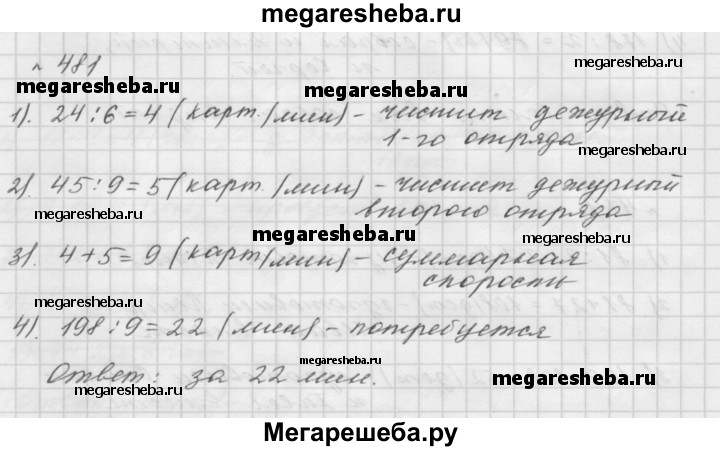 megaresheba.ru
№ 481
megaresheba.ru
megaresheba.ru
1). 24:6=4 (карт./мин) - чистит дежурный
1-го отряда
megaresheba.ru
2). 45:9=5 (карт./мин) - чистит дежурный
megaresheba.ru
второго отряда
megaresheba.ru
3). 4+5=9 (карт/мин) - суммарная
скорость
megaresheba.ru
megaresheba.ru
4). 198:9=22 (мин) - потребуется
megaresheba.ru
Ответ: за 22 мин.
megaresheba.ru
megaresheba.ru
Мегарешеба.ру